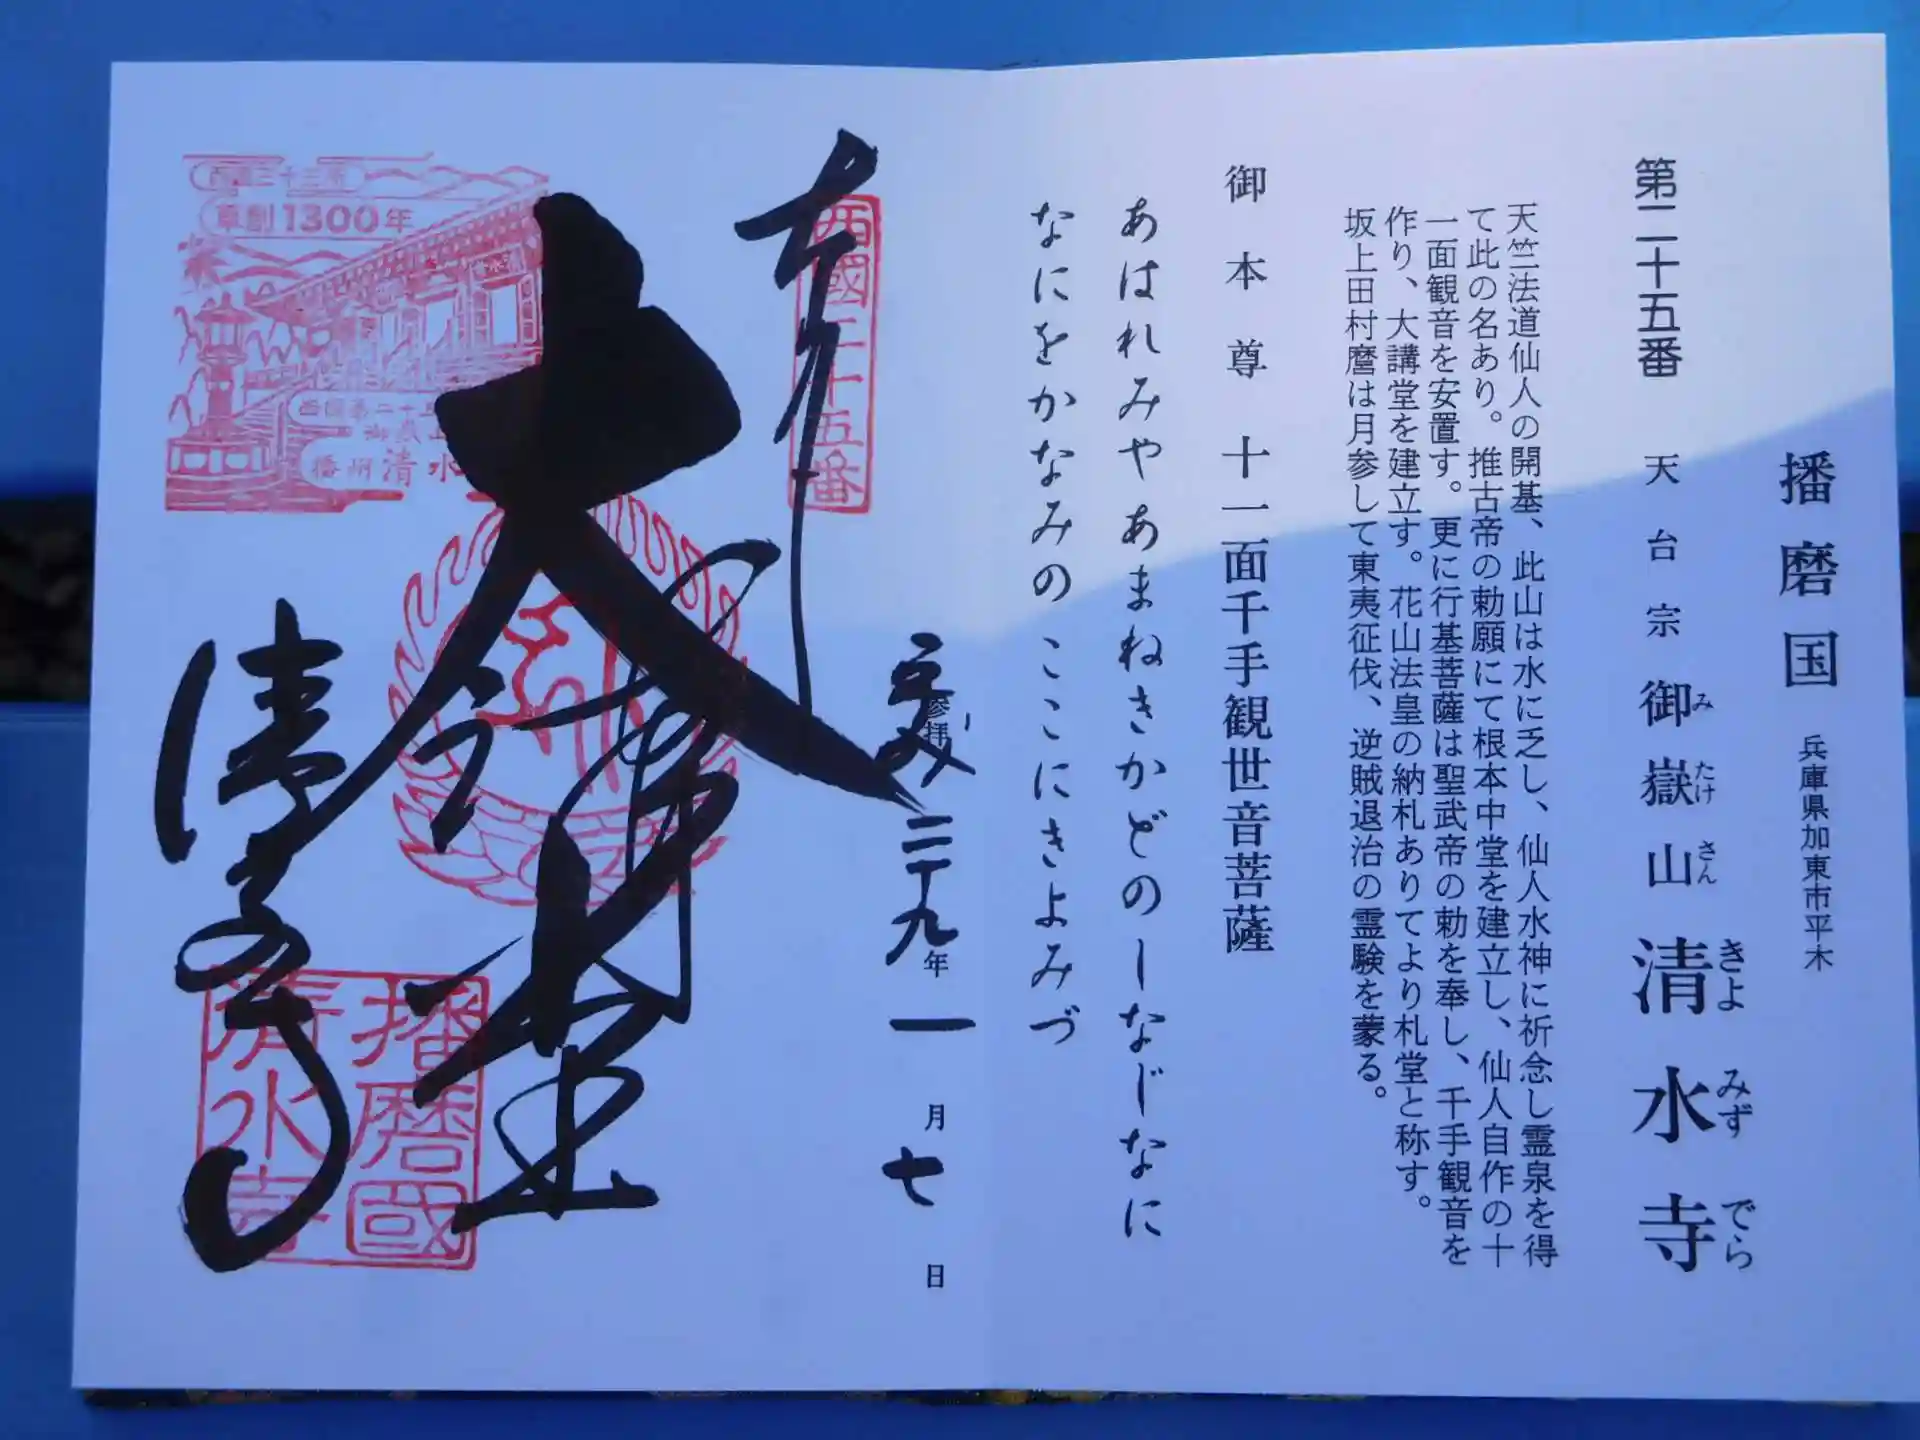 播磨国 兵庫県加東市平木
第二十五番 天台宗 御嶽山 清水寺
みたけさん きよみずでら
天竺法道仙人の開基、此山は水に乏し、仙人水神に祈念し霊泉を得
て此の名あり。推古帝の勅願にて根本中堂を建立し、仙人自作の十
一面観音を安置す。更に行基菩薩は聖武帝の勅を奉し、千手観音を
作り、大講堂を建立す。花山法皇の納札ありてより札堂と称す。
坂上田村麿は月参して東夷征伐、逆賊退治の霊験を蒙る。
御本尊 十一面千手観世音菩薩
あはれみやあまねきかどのしなじなに
なにをかなみのここにきよみづ
平成二十九年一月七日
参拝
奉
西國二十五番
大
清水寺
播磨國
清水寺
西国三十三所
草創1300年
清水寺
播州清水